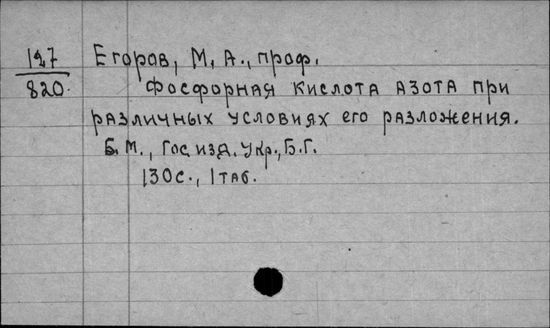 127
820
Егоров, М. А., проф.
Фосфорная кислота азота при
различных условиях его разложения.
Б. М., Гос. изд. Укр., Б. Г.
130 с., 1 таб.